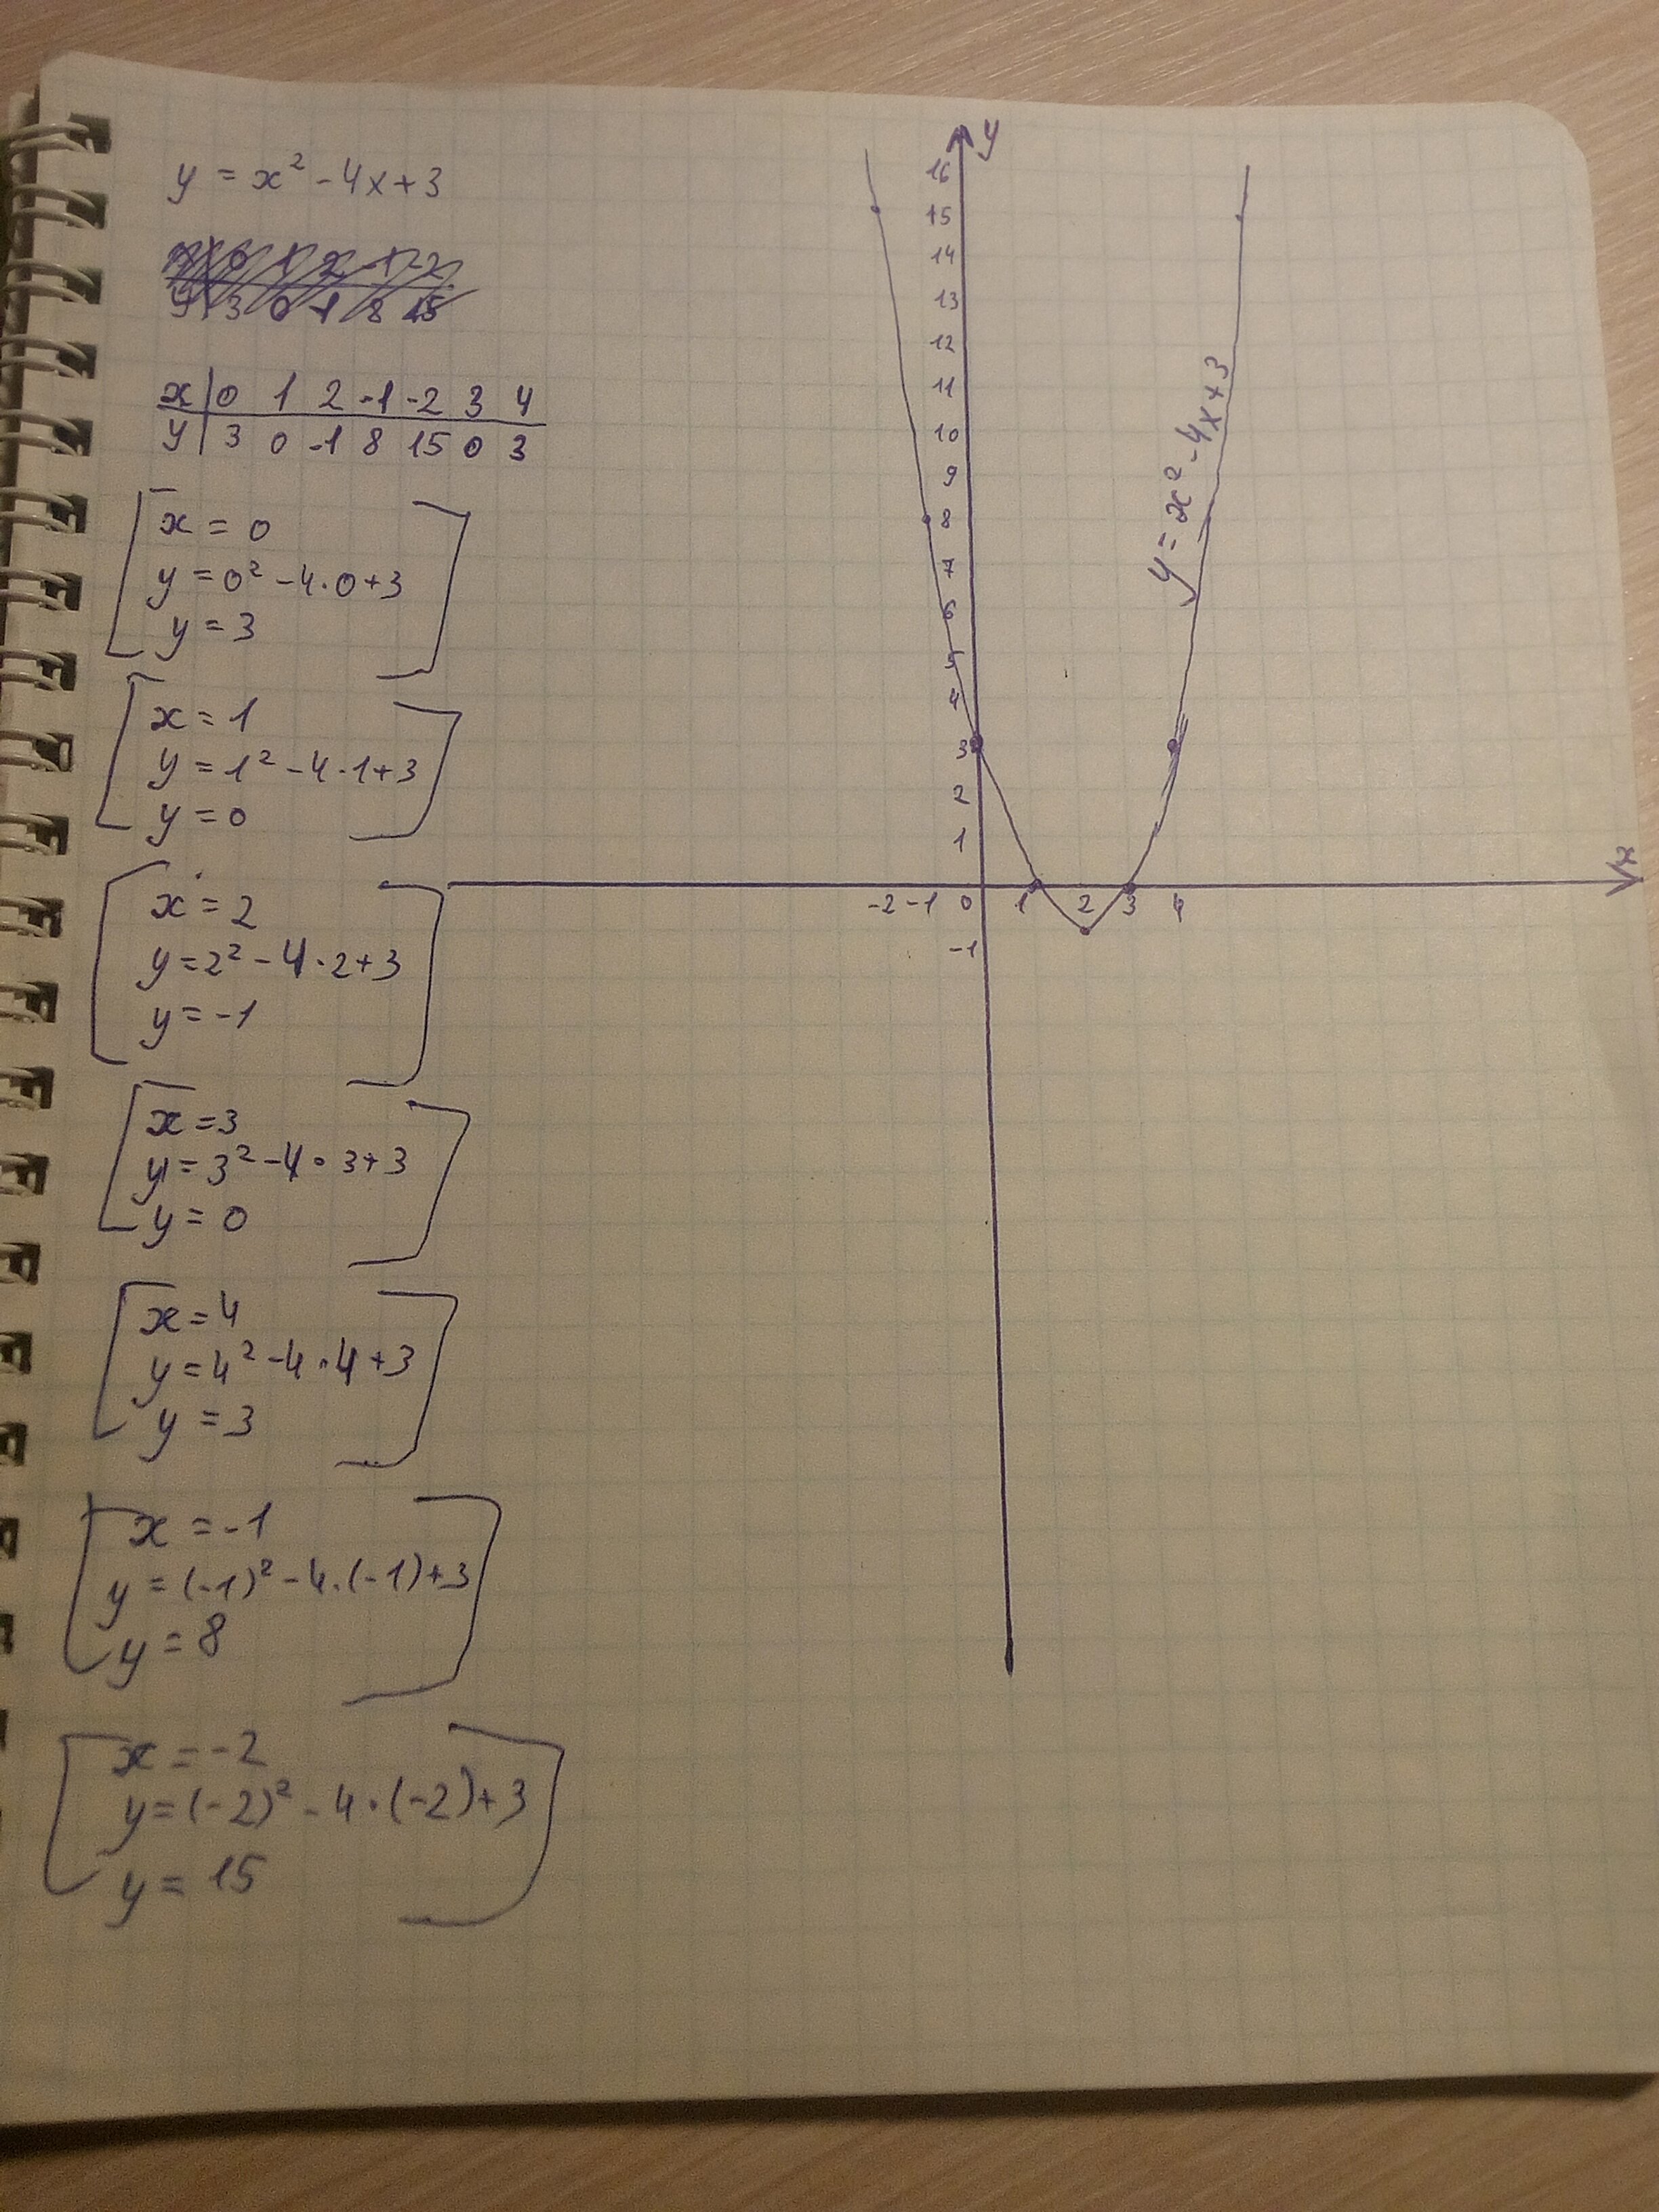 y = x² - 4x + 3
x | 0 1 2 -1 -2
y | 3 0 -1 8 15
x | 0 1 2 -1 -2 3 4
y | 3 0 -1 8 15 0 3
x = 0
y = 0² - 4·0 + 3
y = 3
x = 1
y = 1² - 4·1 + 3
y = 0
x = 2
y = 2² - 4·2 + 3
y = -1
x = 3
y = 3² - 4·3 + 3
y = 0
x = 4
y = 4² - 4·4 + 3
y = 3
x = -1
y = (-1)² - 4·(-1) + 3
y = 8
x = -2
y = (-2)² - 4·(-2) + 3
y = 15
y
16
15
14
13
12
11
10
9
8
7
6
5
4
3
2
1
-2 -1 0 1 2 3 4
x
-1
y = x² - 4x + 3